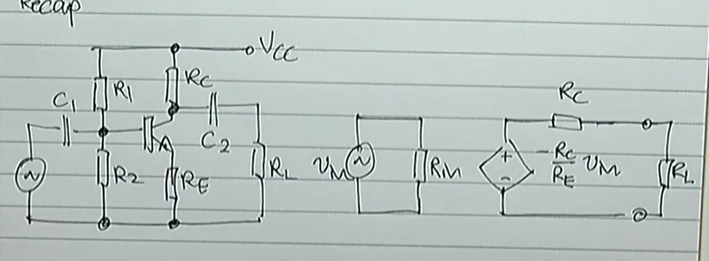 Recap
VCC
R1
RC
C1
C2
R2
RE
RL
VM
RM
RC
+
-
-RC/RE VM
RL